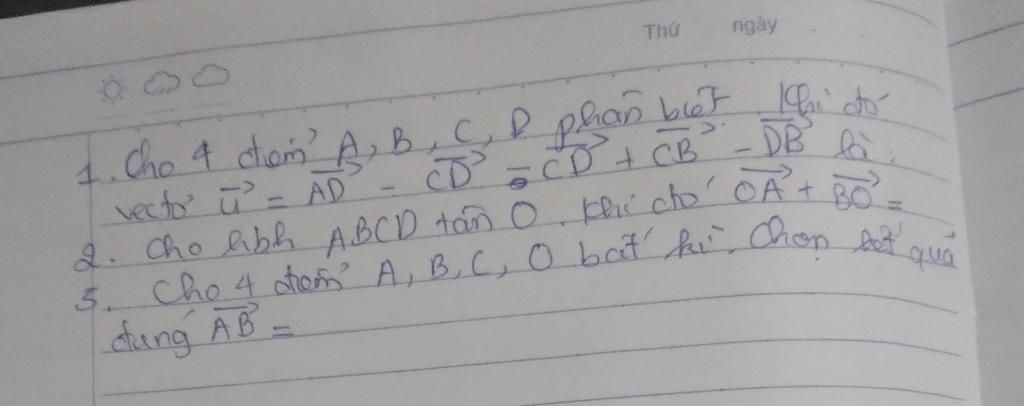 Thứ ngày
1. Cho 4 điểm A, B, C, D phân biệt. Khi đó
vectơ u⃗ = AD⃗ - CD⃗ = CD⃗ + CB⃗ - DB⃗ là:
2. Cho hbh ABCD tâm O. Khi đó OA⃗ + BO⃗ =
3. Cho 4 điểm A, B, C, O bất kì. Chọn kết quả
đúng AB⃗ =